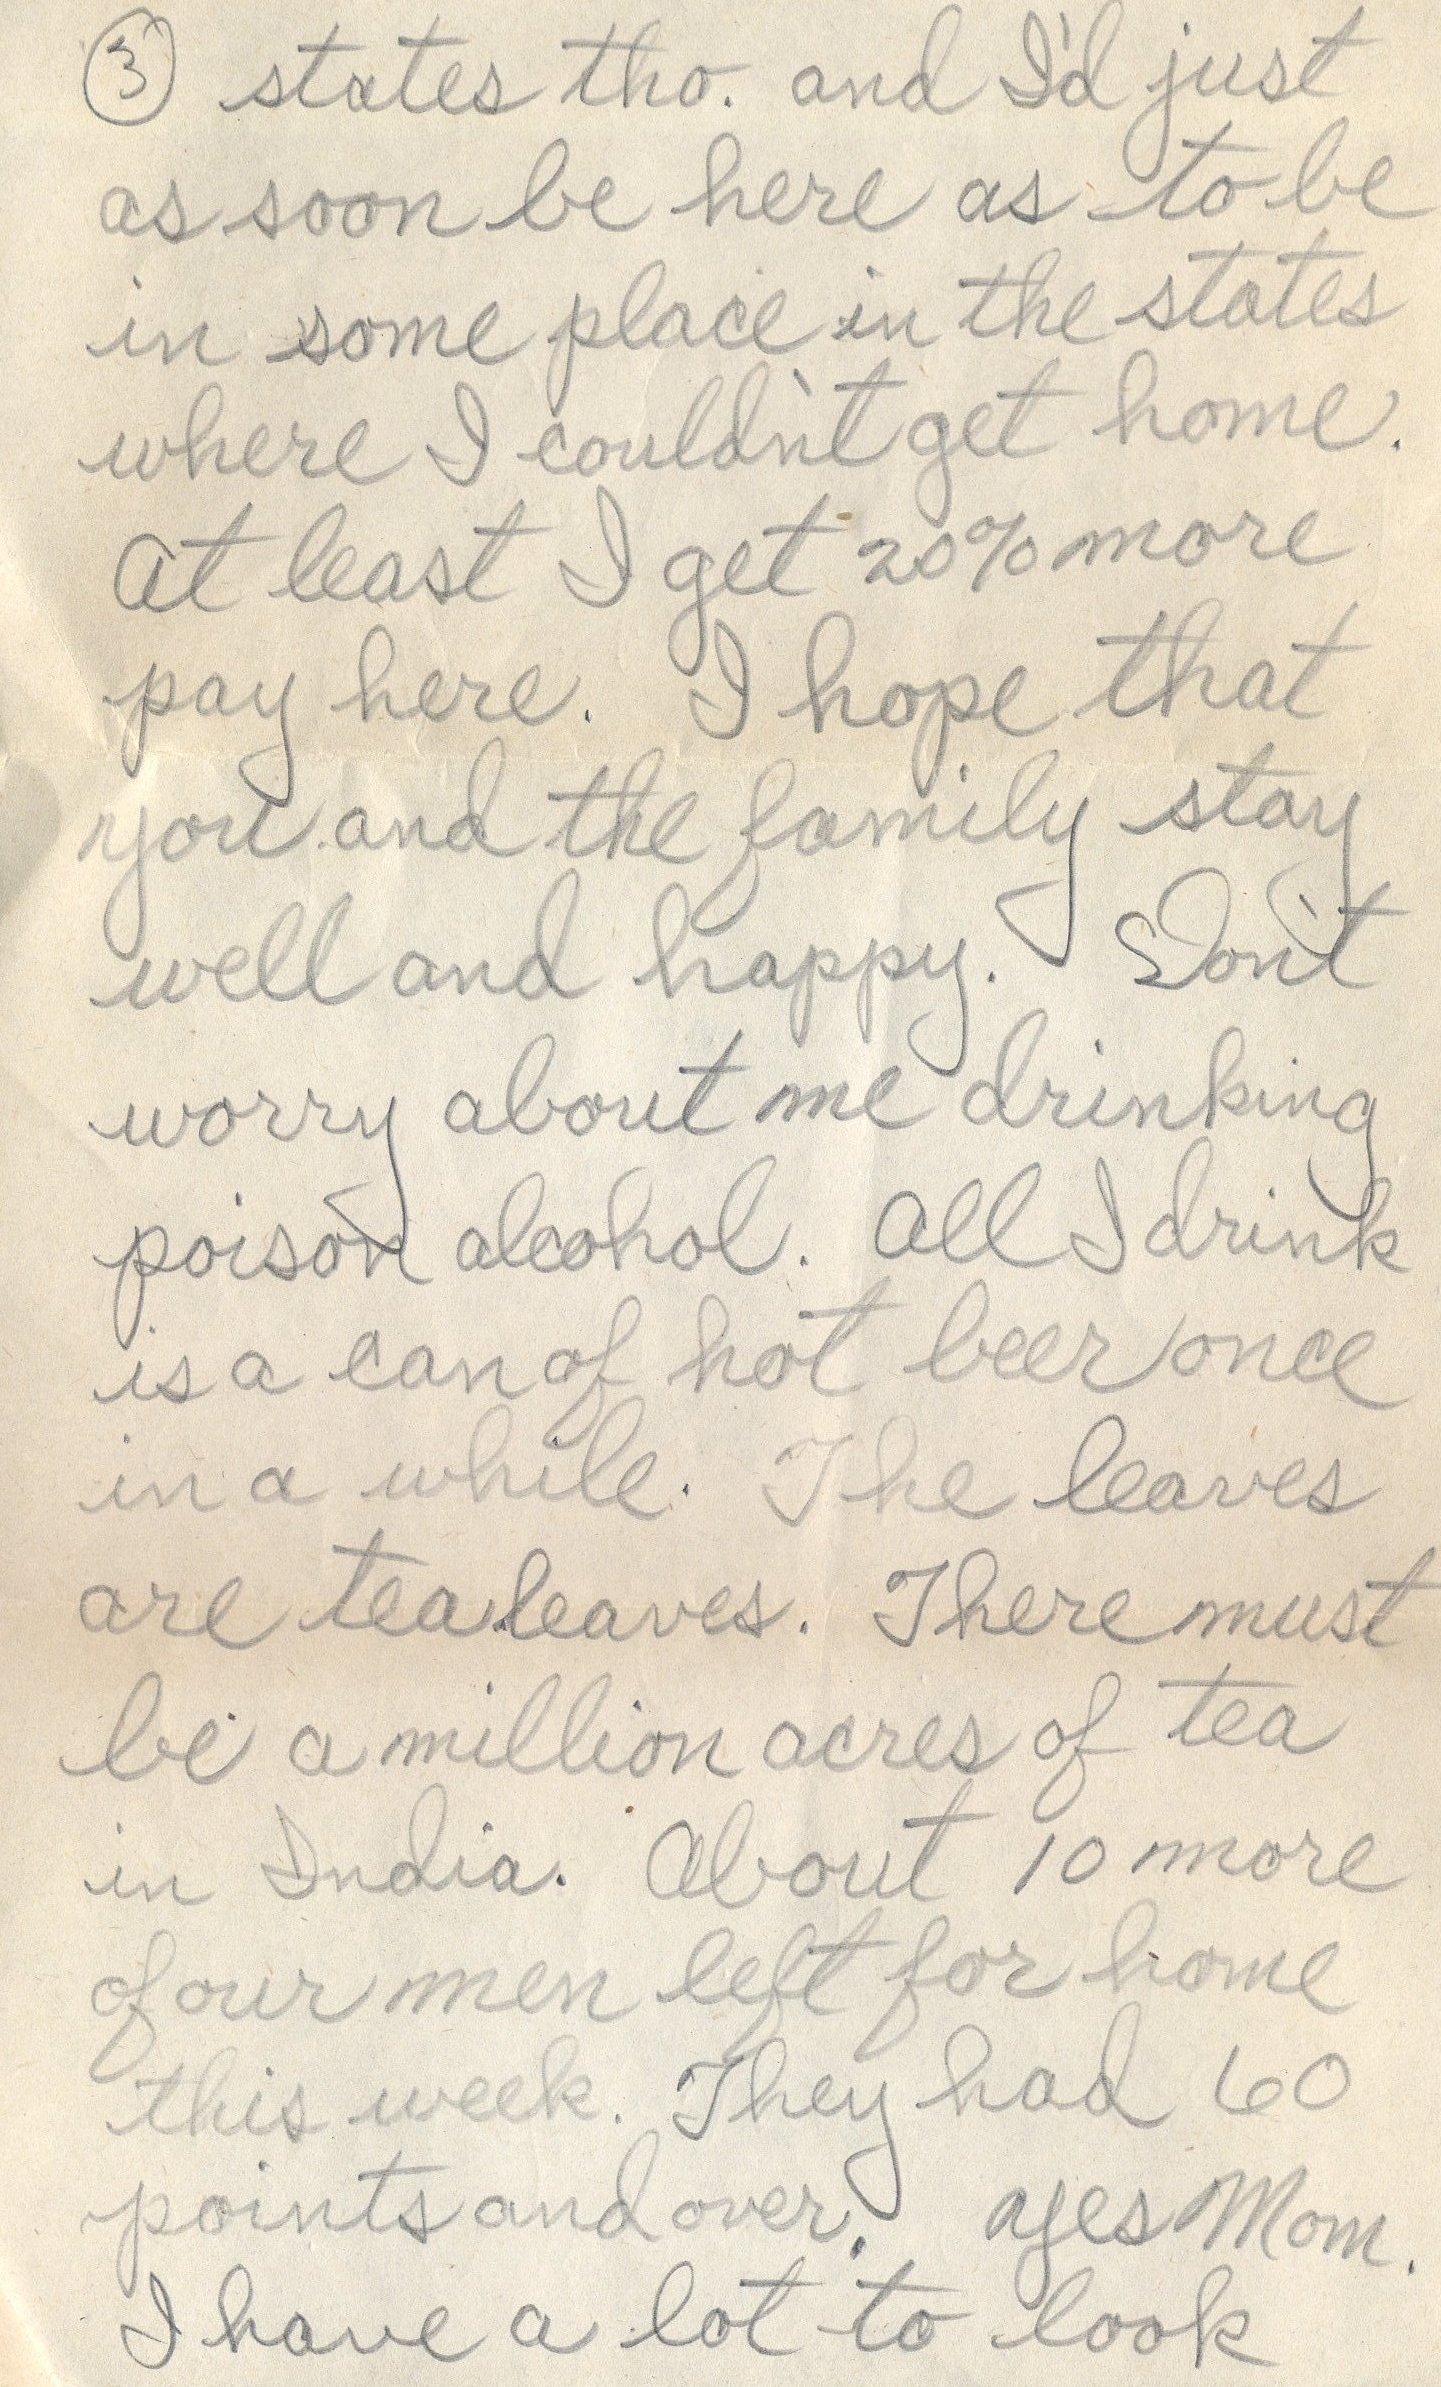 ③ states tho. and I'd just
as soon be here as to be
in some place in the states
where I couldn't get home.
At least I get 20% more
pay here. I hope that
you and the family stay
well and happy. Don't
worry about me drinking
poison alcohol. All I drink
is a can of hot beer once
in a while. The leaves
are tea leaves. There must
be a million acres of tea
in India. About 10 more
of our men left for home
this week. They had 60
points and over. Yes Mom.
I have a lot to look